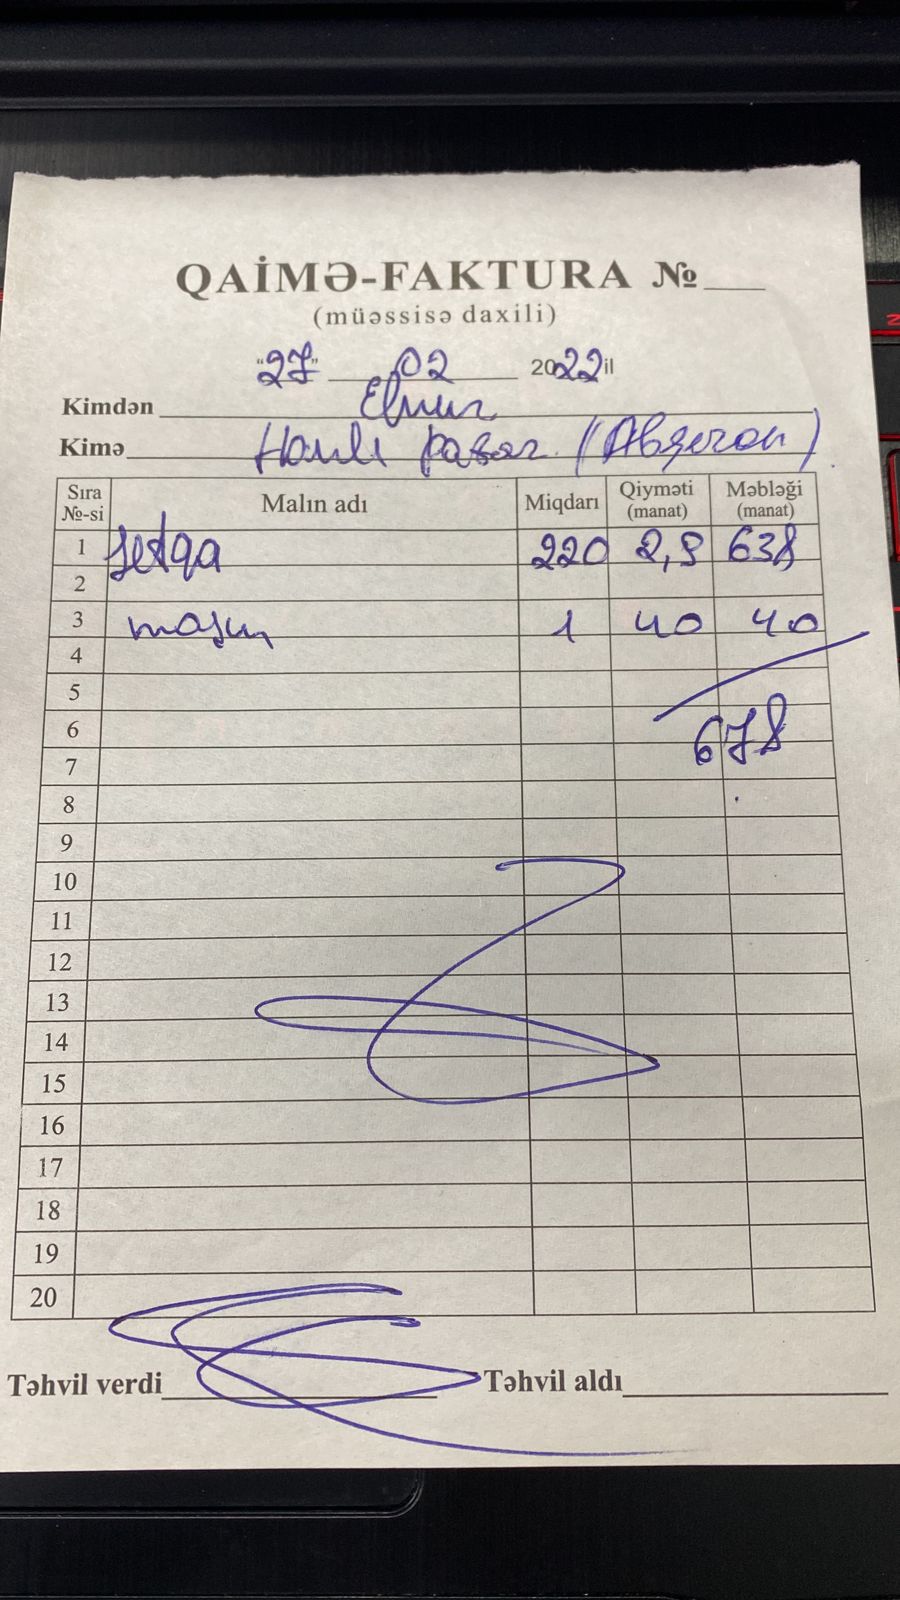 QAİMƏ-FAKTURA №____
(müəssisə daxili)
"27" 02 2022 il
Kimdən Elnur
Kimə Hanlı pazar (Abşeron)
Sıra №-si Malın adı Miqdarı Qiyməti (manat) Məbləği (manat)
1 setqa 220 2,9 638
2
3 maşın 1 40 40
4
5
6 678
7
8
9
10
11
12
13
14
15
16
17
18
19
20
Təhvil verdi Təhvil aldı